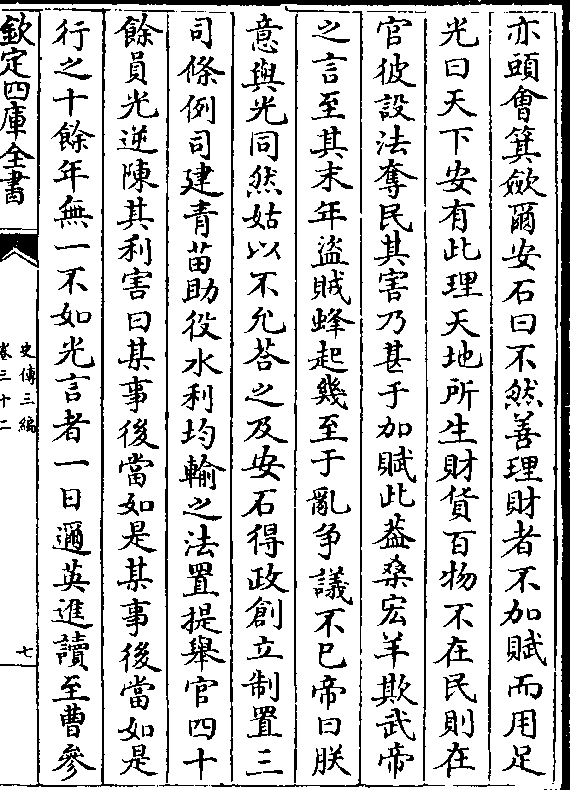 亦頭會箕歛爾安石曰不然善理財者不加賦而用足
光曰天下安有此理天地所生財貨百物不在民則在
官彼設法奪民其害乃甚于加賦此葢桑宏羊欺武帝
之言至其末年盜賊蜂起幾至于亂争議不已帝曰朕
意與光同然姑以不允荅之及安石得政創立制置三
司條例司建青苗助役水利均輸之法置提舉官四十
餘員光逆陳其利害曰某事後當如是某事後當如是
行之十餘年無一不如光言者一日邇英進讀至曹參
欽定四庫全書
史傳三編
卷三十二
七